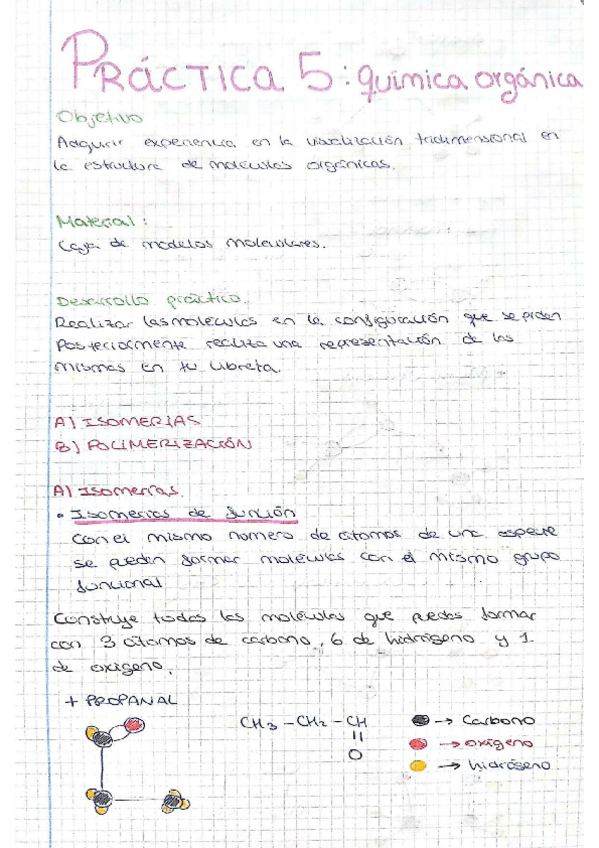 PRÁCTICA 5: química orgánica
Objetivo
Adquirir experiencia en la visualización tridimensional en
la estructura de moléculas orgánicas.
Material:
Caja de modelos moleculares.
Desarrollo práctico.
Realizar las moléculas en la configuración que se piden
Posteriormente realiza una representación de las
mismas en tu libreta.
A) ISOMERIAS
B) POLIMERIZACIÓN
A) Isomerías.
• Isomerias de función
Con el mismo numero de átomos de una especie
se pueden formar moléculas con el mismo grupo
funcional
Construye todas las moléculas que puedas formar
con 3 átomos de carbono, 6 de hidrógeno y 1
de oxígeno.
+ PROPANAL
CH3 - CH2 - CH
O
→ Carbono
→ oxígeno
→ hidrógeno